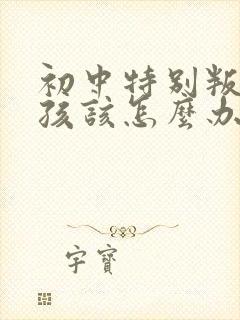 初中特别叛
孩该怎麼办
字寶